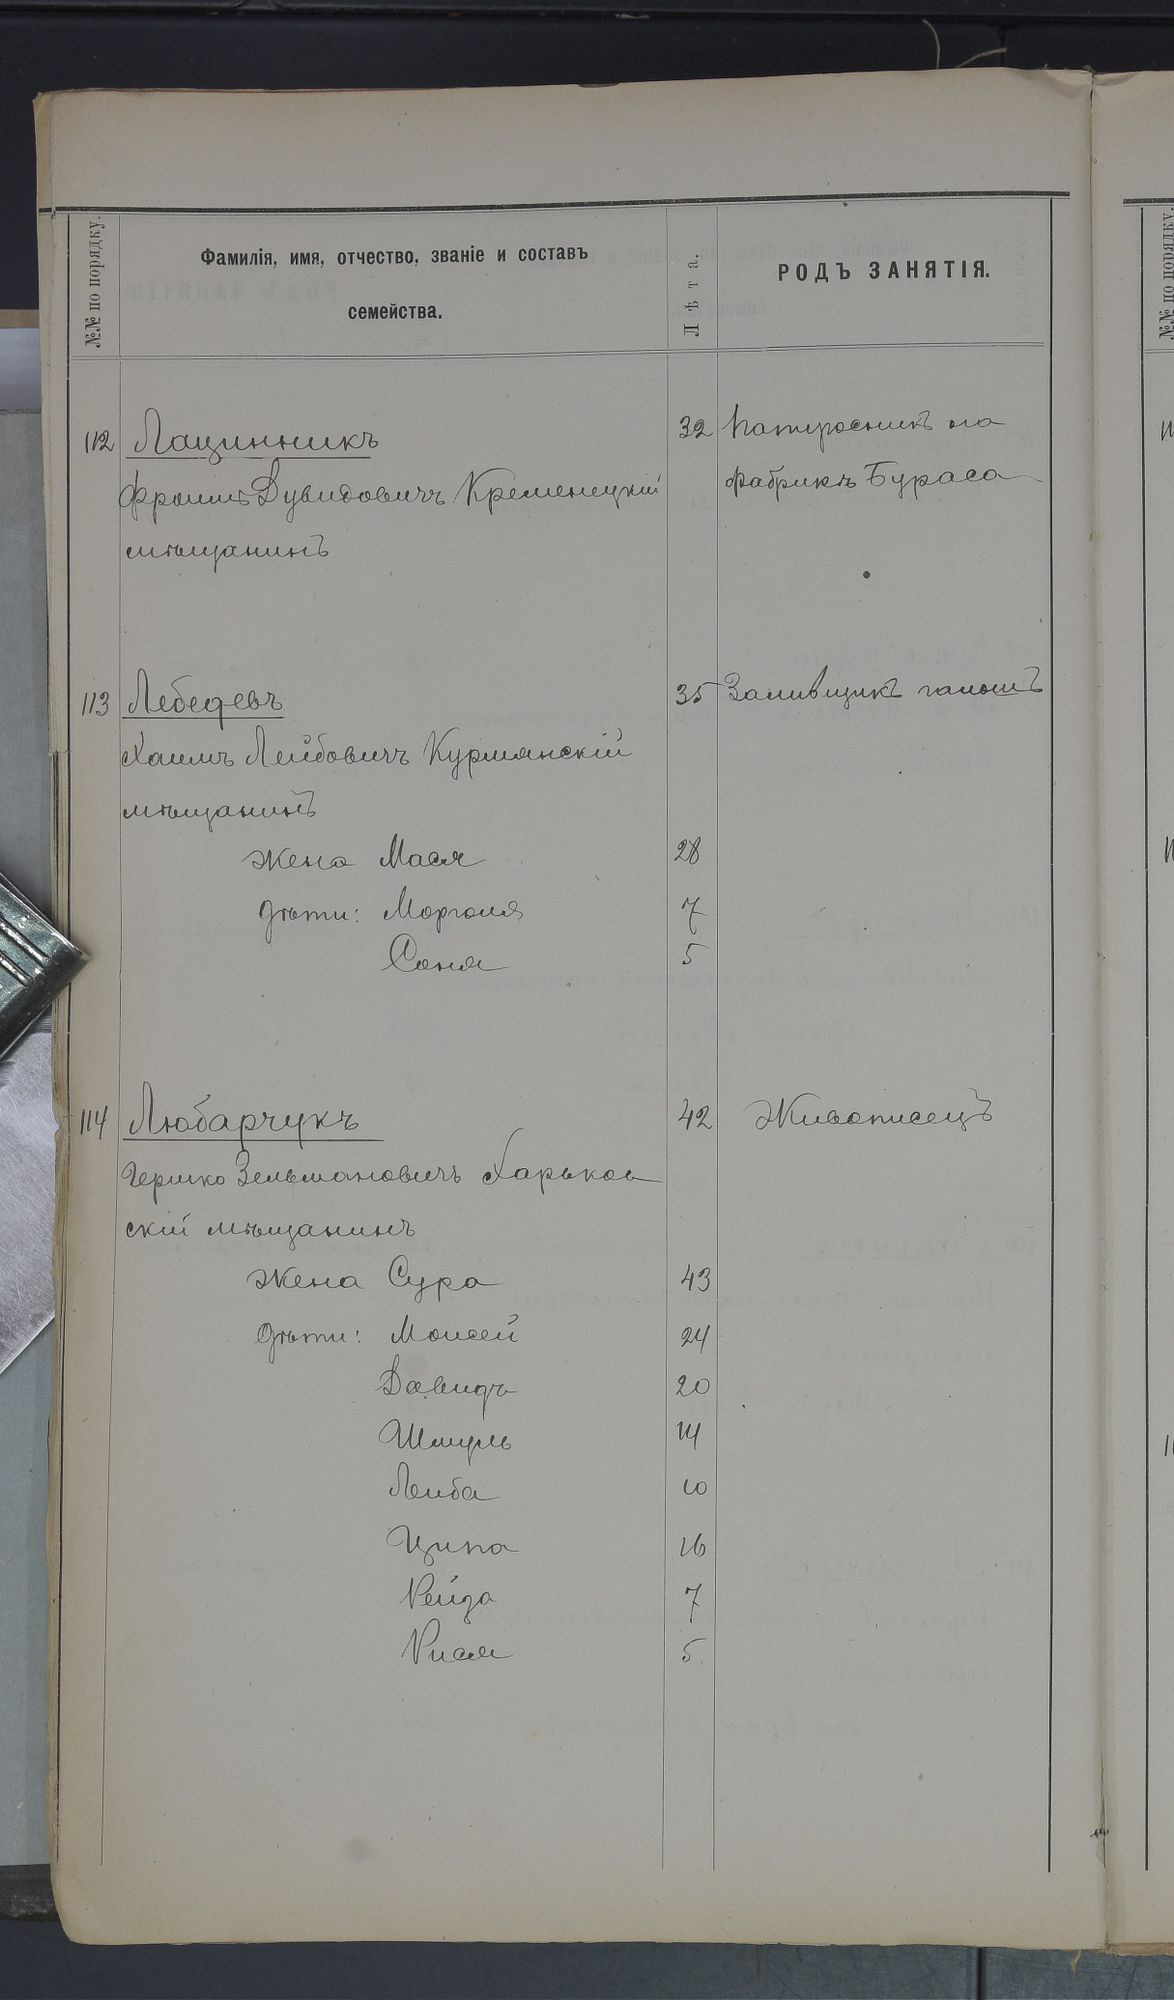 №№ по порядку.
Фамилія, имя, отчество, званіе и составъ
семейства.
Лѣта.
РОДЪ ЗАНЯТІЯ.
№№ по порядку.
112 Лацинникъ 32 Папиросникъ на
Фроимъ Дувидовичъ Кременецкій фабрикѣ Бураса
мѣщанинъ
113 Лебедевъ 35 Заливщикъ галошъ
Хаимъ Лейбовичъ Курлянскій
мѣщанинъ
Жена Мася 28
дѣти: Морголя 7
Соня 5
114 Любарчукъ 42 Живописецъ
Гершко Зельмановичъ Харьков
скій мѣщанинъ
Жена Сура 43
дѣти: Моисей 24
Давидъ 20
Шмуль 14
Лейба 10
Ципа 16
Рейза 7
Рися 5